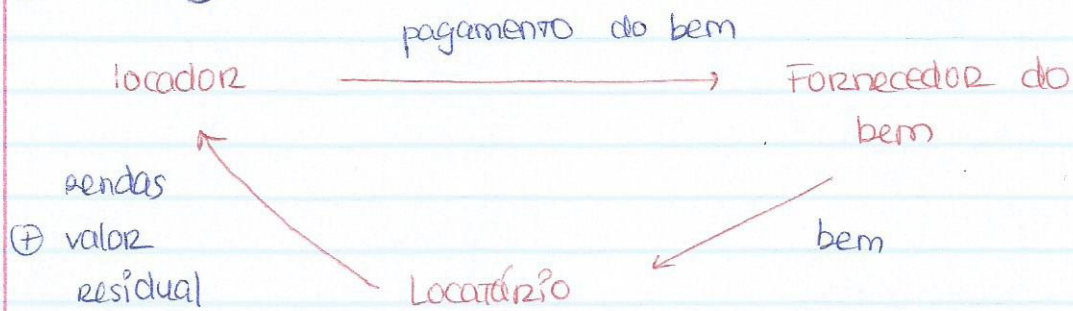 pagamento do bem
locador
Fornecedor do
bem
rendas
⊕ valor
residual
bem
Locatário